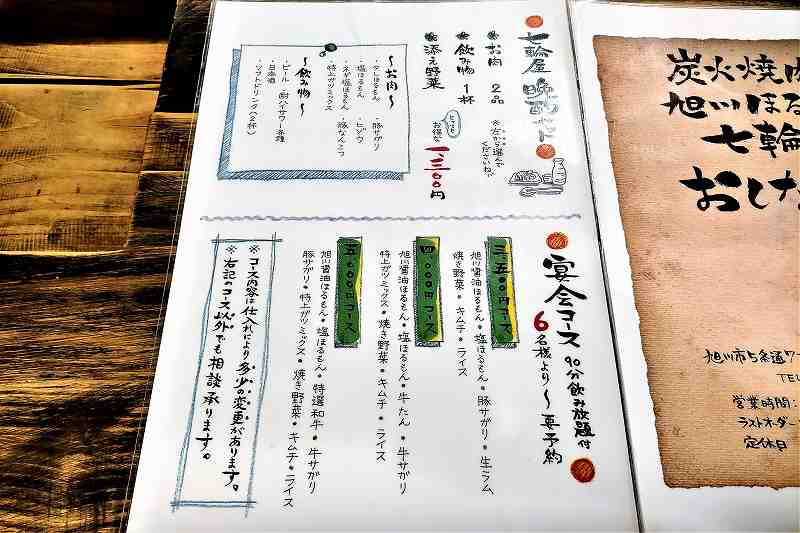 七輪屋 晩酌セット
お肉 2品
※左から選んで
くださいね♪
飲み物 1杯
添え野菜
お得な
一、三〇〇円
～お肉～
・塩ほるもん
・ネギ塩ほるもん
・特上ガツミックス
・豚サガリ
・豚なんこつ
～飲み物～
・ビール
・日本酒
・ソフトドリンク(2杯)
宴会コース 90分飲み放題付
6名様より～要予約
三、五〇〇円コース
旭川醤油ほるもん・塩ほるもん・豚サガリ・生ラム
焼き野菜・キムチ・ライス
四、〇〇〇円コース
旭川醤油ほるもん・塩ほるもん・牛たん・牛サガリ
特上ガツミックス・焼き野菜・キムチ・ライス
五、〇〇〇円コース
旭川醤油ほるもん・塩ほるもん・特選和牛・牛サガリ
豚サガリ・特上ガツミックス・焼き野菜・キムチ・ライス
※コース内容は仕入れにより多少の変更があります。
※右記のコース以外でも相談承ります。
炭火焼肉
旭川ほる
七輪
おしな
旭川市5条通7
TEL
営業時間:
ラストオーダー
定休日